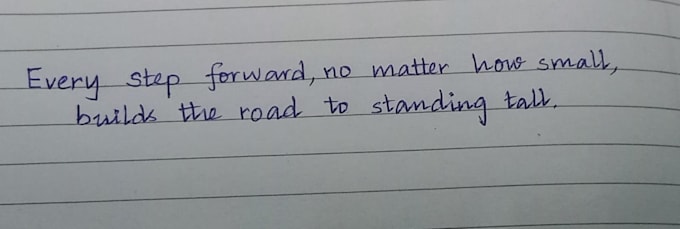 Every step forward, no matter how small,
builds the road to standing tall.